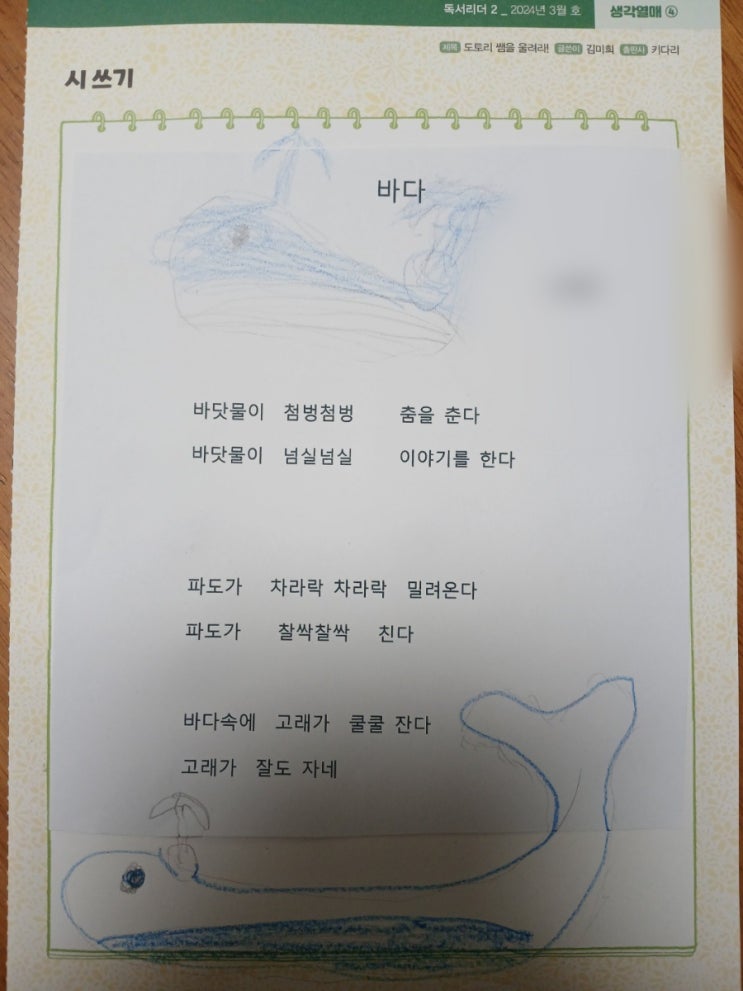 독서리더 2 _ 2024년 3월 호 생각열매 ④
제목 도토리 쌤을 울려라! 글쓴이 김미희 출판사 키다리
시 쓰기
바다
바닷물이 첨벙첨벙 춤을 춘다
바닷물이 넘실넘실 이야기를 한다
파도가 차라락 차라락 밀려온다
파도가 찰싹찰싹 친다
바다속에 고래가 쿨쿨 잔다
고래가 잘도 자네